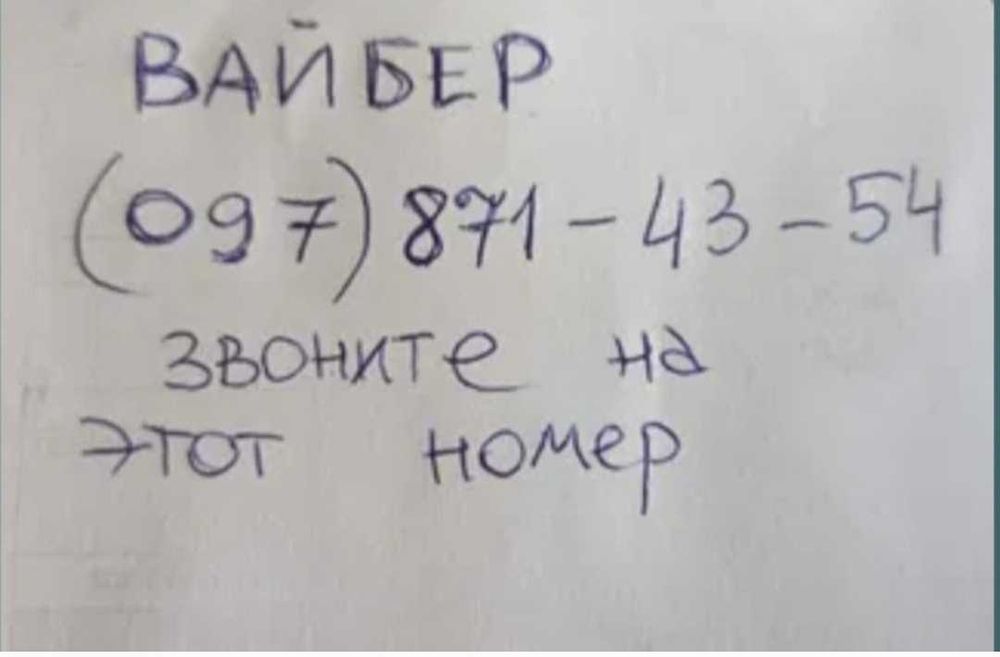 ВАЙБЕР
(097) 871-43-54
звоните на
этот номер